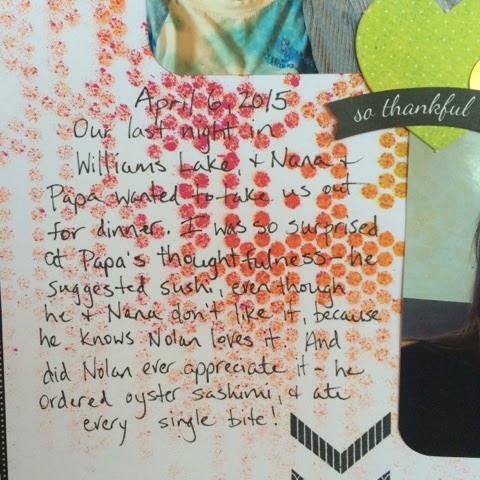 so thankful
April 6, 2015
Our last night in
Williams Lake, & Nana &
Papa wanted to take us out
for dinner. I was so surprised
at Papa's thoughtfulness - he
suggested sushi, even though
he & Nana don't like it, because
he knows Nolan loves it. And
did Nolan ever appreciate it - he
ordered oyster sashimi, & ate
every single bite!